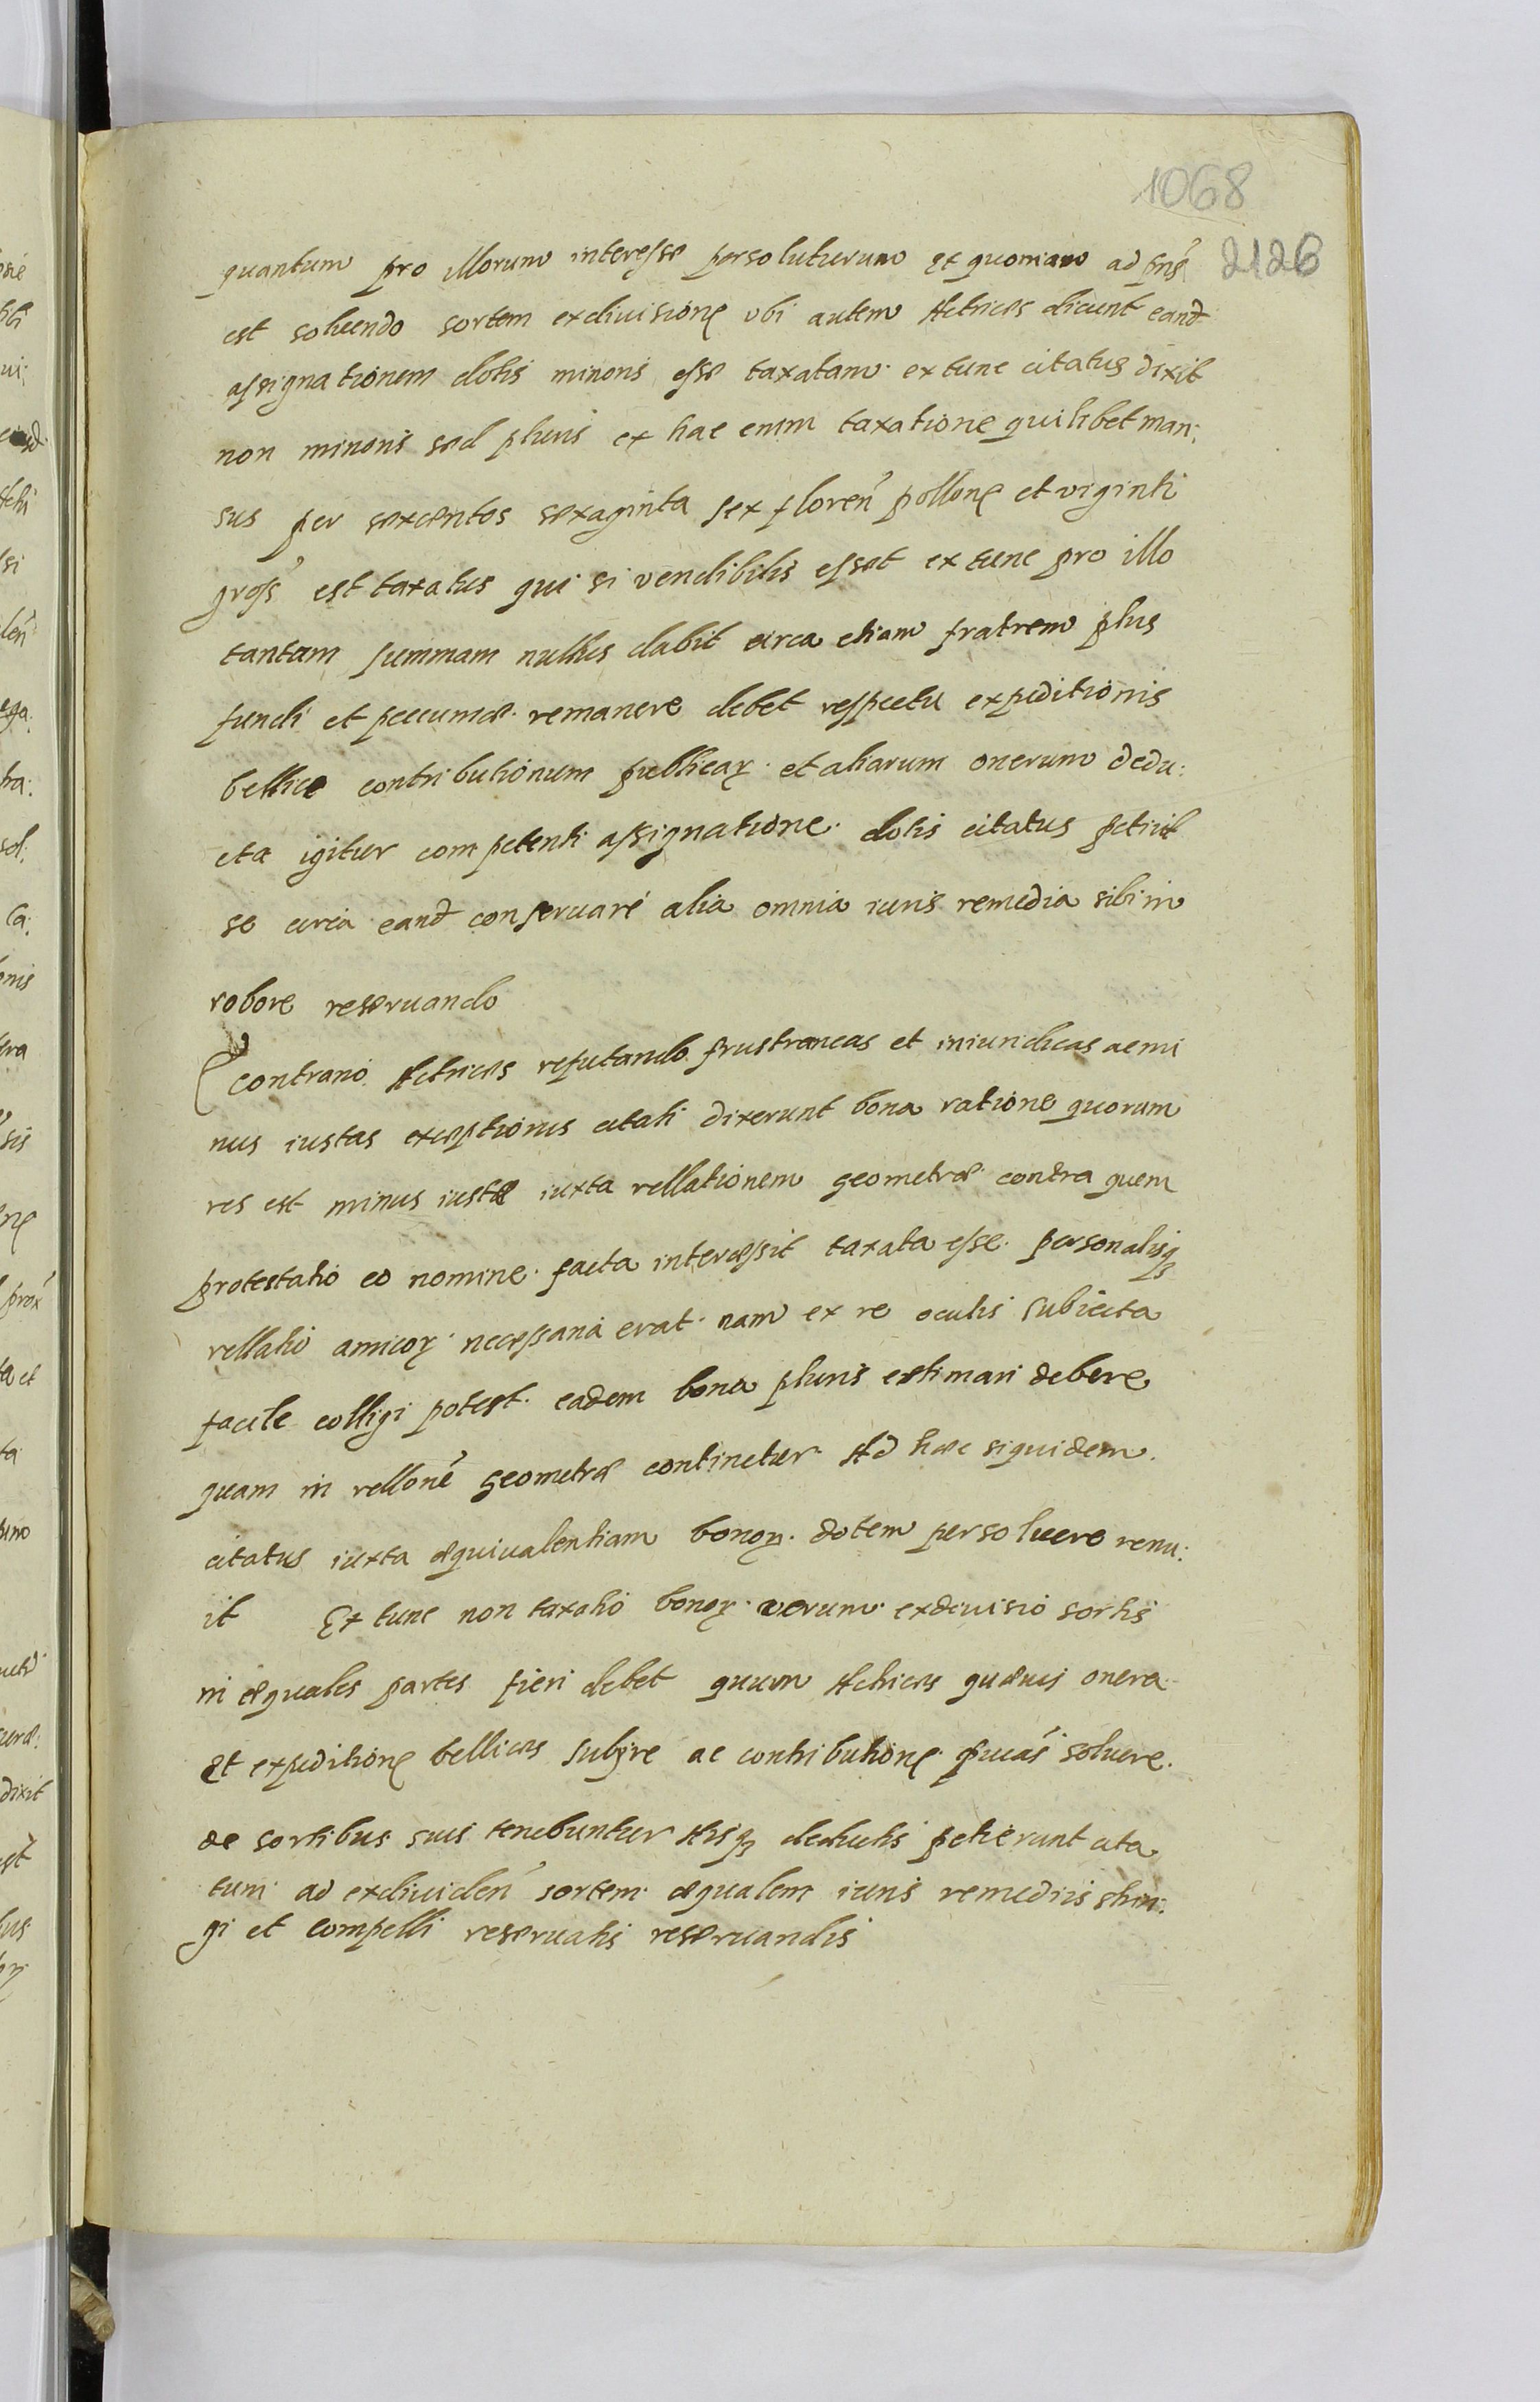 1068
2126
quantum pro illorum interesse persoluturum et quoniam ad
est soluendo sortem exdiuisione ubi autem Actrices dicunt eand
assignationem dotis minoris esse taxatam extunc citatus dixit
non minoris sed pluris ex hac enim taxatione quilibet man:
sus per sexcentos sexaginta sex floren pollone et viginti
gross est taxatus qui si vendibilis esset extunc pro illo
tantam summam nullus dabit circa etiam fratrem plus
fundi et pecuniæ remanere debet respectu expeditionis
bellice contributionum publicar et aliarum onerum dedu:
cta igitur competenti assignatione dotis citatus petiit
se circa eand conseruari alia omnia iuris remedia sibi in
robore reseruando
Econtrario Actrices refutando frustraneas et iniuridicas ac mi
nus iustas exceptiones citati dixerunt bona ratione quorum
res est minus iuste iuxta rellationem geometræ contra quem
protestatio eo nomine facta intercessit taxata esse personalisq
rellatio amicor necessaria erat nam ex re oculis subiecta
facile colligi potest eadem bona pluris estimari debere
quam in rellone geometræ continetur Ad hæc siquidem
citatus iuxta æquiualentiam bonor dotem persoluere renu:
it Extunc non taxatio bonor verum exdiuisio sortis
in æquales partes fieri debet quum Actrices quæuis onera
et expeditione bellicas subire ac contributione pucas soluere
de sortibus suis tenebuntur Hisq deductis petierunt cita
tum ad exdiuiden sortem æqualem iuris remediis strin:
gi et compelli reseruatis reseruandis